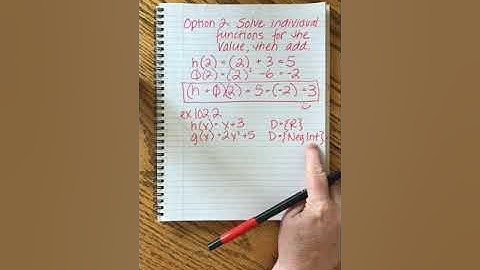 Option 2: Solve individual
functions for the
value, then add.
h(2) = (2) + 3 = 5
φ(2) = (2)² - 6 = -2
(h + φ)(2) = 5 + (-2) = 3
ex 102.2
h(x) = x + 3 D = {R}
g(x) = 2x² + 5 D = {Neg Int}